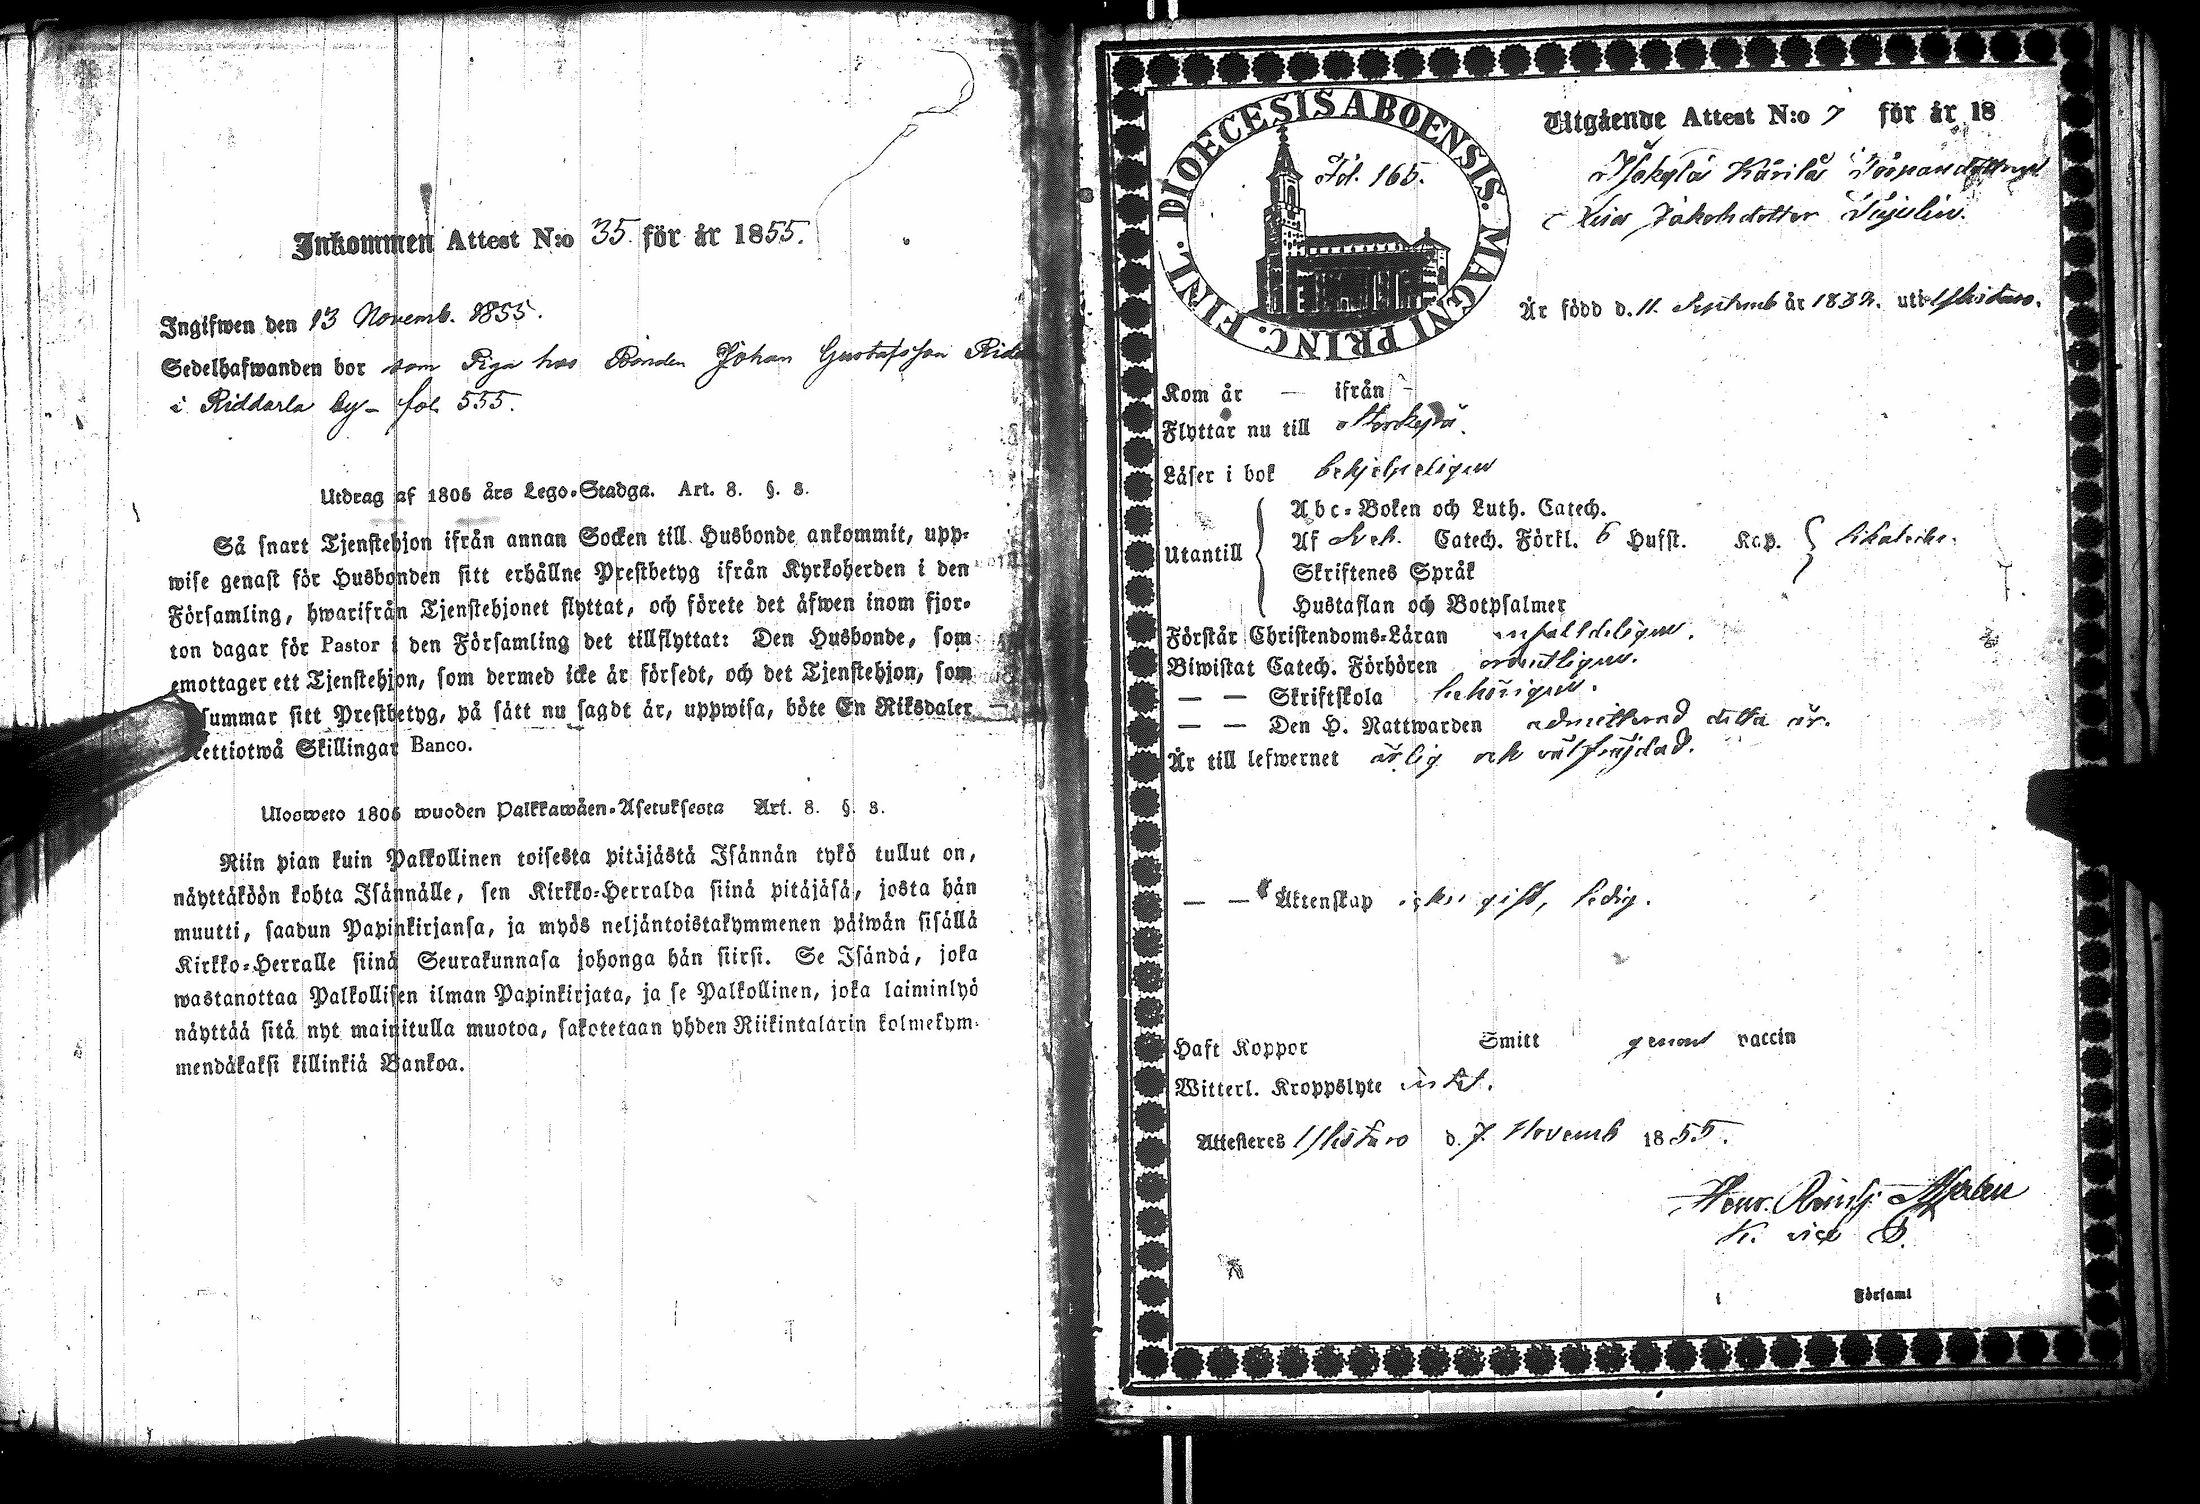 Inkommen Attest N:o 35 för år 1855.
Ingifwen den 13 Novemb. 1855.
Sedelhafwanden bor som Piga hos Bonden Johan Gustafsson
i Riddarla by – fol 555.
Utdrag af 1805 års Lego-Stadga. Art. 8. §. 8.
Så snart Tjenstehjon ifrån annan Socken till Husbonde ankommit, upp-
wise genast för Husbonden sitt erhållne Prestbetyg ifrån Kyrkoherden i den
Församling, hwarifrån Tjenstehjonet flyttat, och förete det äfwen inom fjor-
ton dagar för Pastor i den Församling det tillflyttat: Den Husbonde, som
emottager ett Tjenstehjon, som dermed icke är försedt, och det Tjenstehjon, som
summar sitt Prestbetyg, på sätt nu sagdt är, uppwisa, böte En Riksdaler
rettiotwå Skillingar Banco.
Ulosweto 1805 wuoden Palkkawäen-Asetuksesta Art. 8. §. 8.
Niin pian kuin Palkollinen toisesta pitäjästä Isännän tykö tullut on,
näyttäköön kohta Isännälle, sen Kirkko-Herralda siinä pitäjäsä, josta hän
muutti, saadun Papinkirjansa, ja myös neljäntoistakymmenen päiwän sisällä
Kirkko-Herralle siinä Seurakunnasa johonga hän siirsi. Se Isändä, joka
wastanottaa Palkollisen ilman Papinkirjata, ja se Palkollinen, joka laiminlyö
näyttää sitä nyt mainitulla muotoa, sakotetaan yhden Riikintalarin kolmekym-
mendäkaksi killinkiä Bankoa.
DIOECESIS ABOENSIS. MAGNI PRINC. FINL.
Fol. 165.
Utgående Attest N:o 7 för år 18
Jakobsdotter
Är född d. 11. Septemb år 1832. uti Ilistaro.
Kom år — ifrån —
Flyttar nu till Storkyro.
Läser i bok behjelpeligen
Utantill
Abc-Boken och Luth. Catech.
Af Sveb. Catech. Förkl. 6 Hufst. Kap.
Skriftenes Språk
Hustaflan och Botpsalmer
Förstår Christendoms-Läran enfalldeligen.
Biwistat Catech. Förhören ordentligen.
— — Skriftskola behörigen.
— — Den H. Nattwarden admitterad detta år.
Är till lefwernet ärlig och välfräjdad.
— — Äktenskap icke gift, ledig.
Haft Koppor Smitt genom vaccin
Witterl. Kroppslyte intet.
Attesteres Ilistaro d. 7. Novemb 1855.
Henr.
K. vice P.
Församl